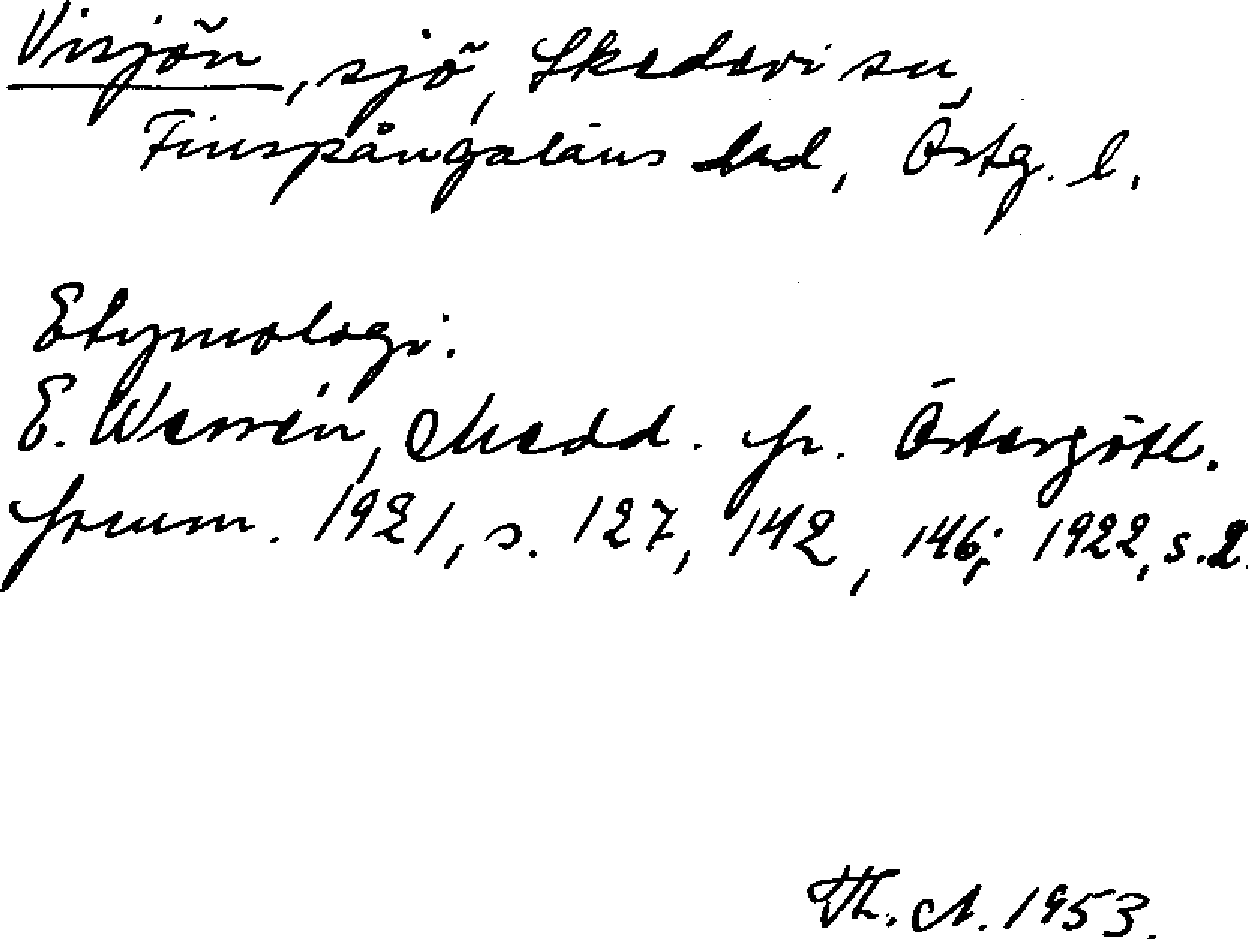 Visjön, sjö, Skedevi sn,
Finspångaläns hd, Östg. l.
Etymologi:
E. Wessén, Medd. fr. Östergötl.
fornm. 1921, s. 127, 142, 146; 1922, s. 2.
Th. A. 1953.